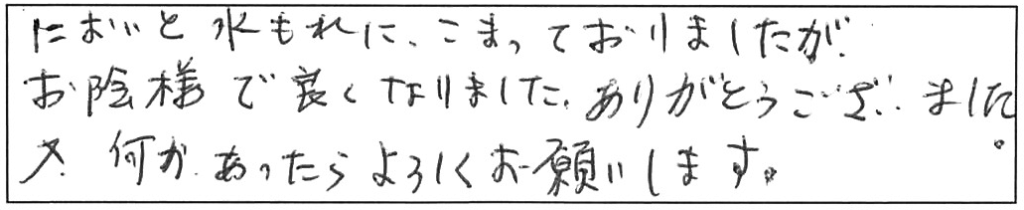 においと水もれに、こまっておりましたが、
お陰様で良くなりました、ありがとうございました。
又、何かあったらよろしくお願いします。